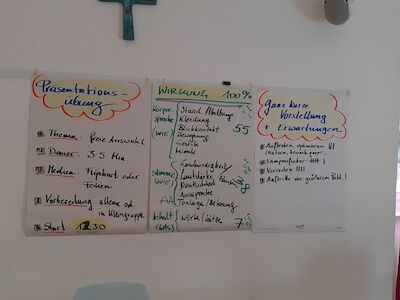 Präsentations-
übung
Thema: freie Auswahl
Dauer: 3-5 Min.
Medien: Flipchart oder
Folien
Vorbereitung: alleine od.
in Kleingruppe
Start: 1230
WIRKUNG 100%
Körper-
sprache
(WIE)
Stand/Haltung
Kleidung
Blickkontakt
Bewegung
Gestik
Mimik
55
Stimme
(WIE)
Geschwindigkeit
Lautstärke, Pausen
Deutlichkeit
Aussprache
Tonlage/Betonung
38
Inhalt
(WAS)
Worte/Sätze
7
Ganz kurze
Vorstellung
+ Erwartungen
Auftreten optimieren
Lampenfieber
Versteckt
Auftritte vor größerem Publ.